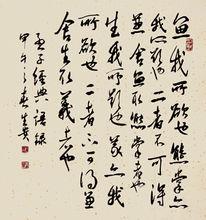 魚我所欲也熊掌亦
我所欲也二者不可得
兼舍魚而取熊掌者也
生我所欲也義亦我
所欲也二者不可得兼
舍生而取義者也
孟子經典語錄
甲午之春